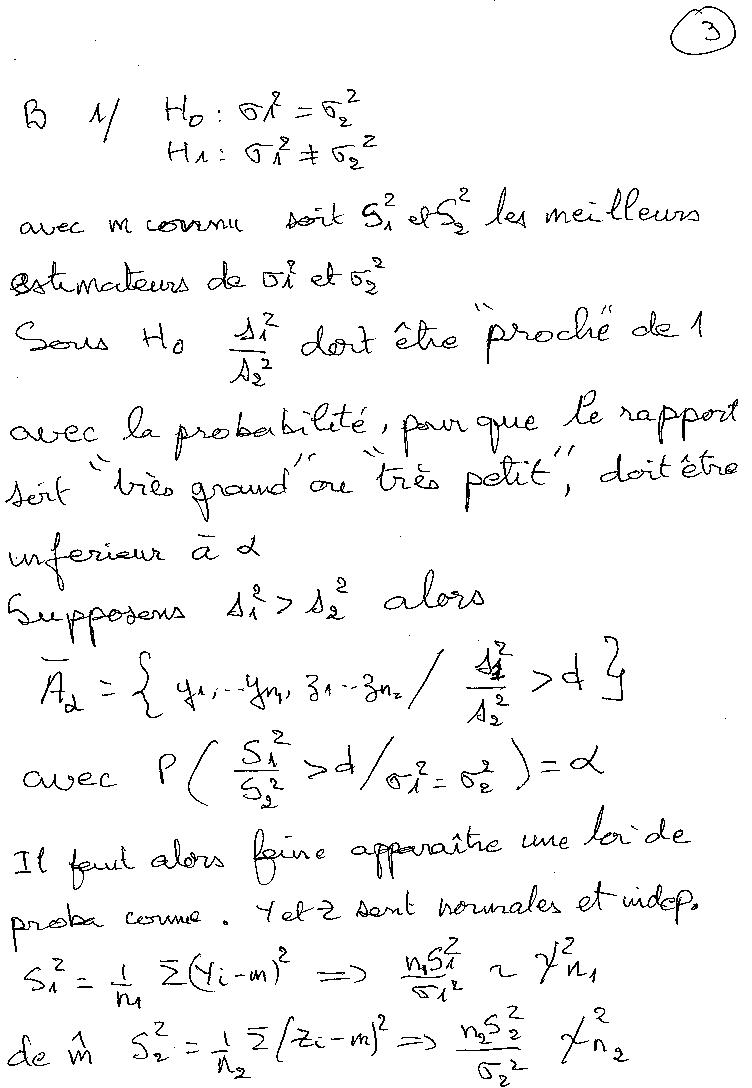 3
B 1/ H₀ : σ₁² = σ₂²
H₁ : σ₁² ≠ σ₂²
avec m connu soit S₁² et S₂² les meilleurs
estimateurs de σ₁² et σ₂²
Sous H₀ s₁²/s₂² doit être "proche" de 1
avec la probabilité, pour que le rapport
soit "très grand" ou "très petit", doit être
inferieur à α
Supposons s₁² > s₂² alors
Āα = { y₁,..yn₁, z₁..zn₂ / s₁²/s₂² > d }
avec P( S₁²/S₂² > d / σ₁² = σ₂² ) = α
Il faut alors faire apparaître une loi de
proba connue. Y et Z sont normales et indep.
S₁² = 1/n₁ Σ(Yi-m)² => n₁S₁²/σ₁² ~ χ²n₁
de m̂ S₂² = 1/n₂ Σ(Zi-m)² => n₂S₂²/σ₂² χ²n₂